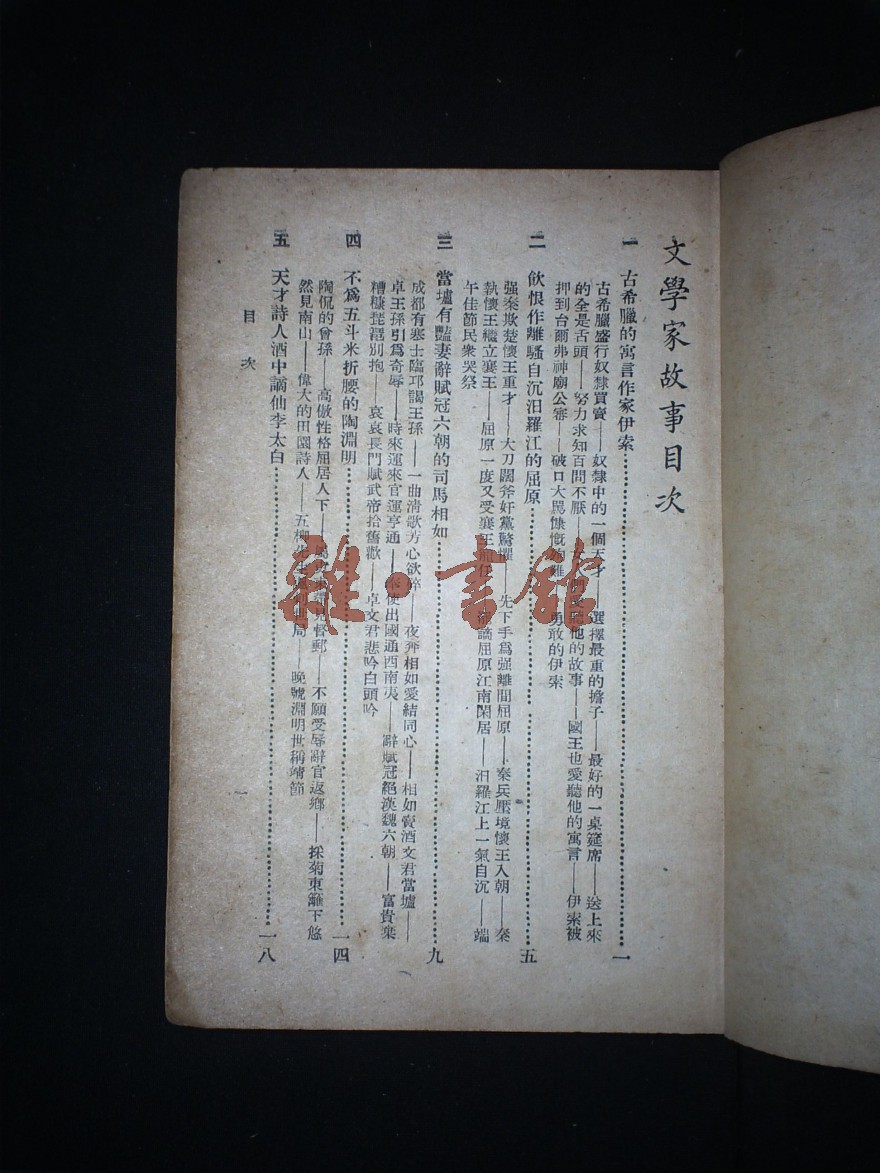 文學家故事目次
一 古希臘的寓言作家伊索……一
古希臘盛行奴隸買賣——奴隸中的一個天才——選擇最重的擔子——最好的一桌筵席——送上來
的全是舌頭——努力求知百問不厭——他的故事——國王也愛聽他的寓言——伊索被
押到台爾弗神廟公審——破口大罵慷慨勇敢的伊索
二 飲恨作離騷自沉汨羅江的屈原……五
强秦欺楚懷王重才——大刀闊斧奸黨驚懼——先下手爲强離間屈原——秦兵壓境懷王入朝——秦
執懷王纔立襄王——屈原一度又受襄王——謫屈原江南閑居——汨羅江上一氣自沉——端
午佳節民衆哭祭
三 當壚有豔妻辭賦冠六朝的司馬相如……九
成都有寒士臨邛謁王孫——一曲淸歌芳心欲醉——夜奔相如愛結同心——相如賣酒文君當壚——
卓王孫引爲奇辱——時來運來官運亨通——奉使出國通西南夷——辭賦冠絕漢魏六朝——富貴棄
糟糠琵琶別抱——哀哀長門賦武帝拾舊歡——卓文君悲吟白頭吟
四 不爲五斗米折腰的陶淵明……一四
陶侃的曾孫——高傲性格屈居人下——督郵——不願受辱辭官返鄉——採菊東籬下悠
然見南山——偉大的田園詩人——五柳局——晚號淵明世稱靖節
五 天才詩人酒中謫仙李太白……一八
目次
一
雜·書館